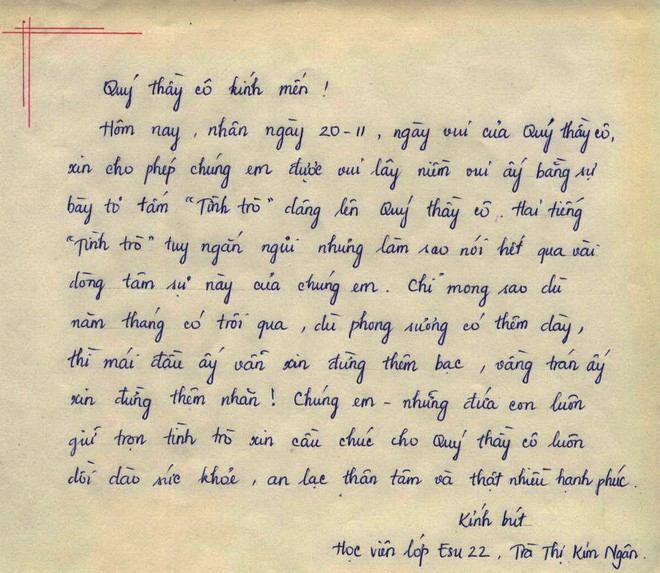 Quý thầy cô kính mến !
Hôm nay , nhân ngày 20-11 , ngày vui của Quý thầy cô,
xin cho phép chúng em được vui lây niềm vui ấy bằng sự
bày tỏ tấm "Tình trò" dâng lên Quý thầy cô . Hai tiếng
"Tình trò" tuy ngắn ngủi nhưng làm sao nói hết qua vài
dòng tâm sự này của chúng em . Chỉ mong sao dù
năm tháng có trôi qua , dù phong sương có thêm dày ,
thì mái đầu ấy vẫn xin đừng thêm bạc , vầng trán ấy
xin đừng thêm nhăn ! Chúng em - những đứa con luôn
giữ trọn tình trò xin cầu chúc cho Quý thầy cô luôn
dồi dào sức khỏe , an lạc thân tâm và thật nhiều hạnh phúc .
Kính bút
Học viên lớp Esu 22 , Trà Thị Kim Ngân .